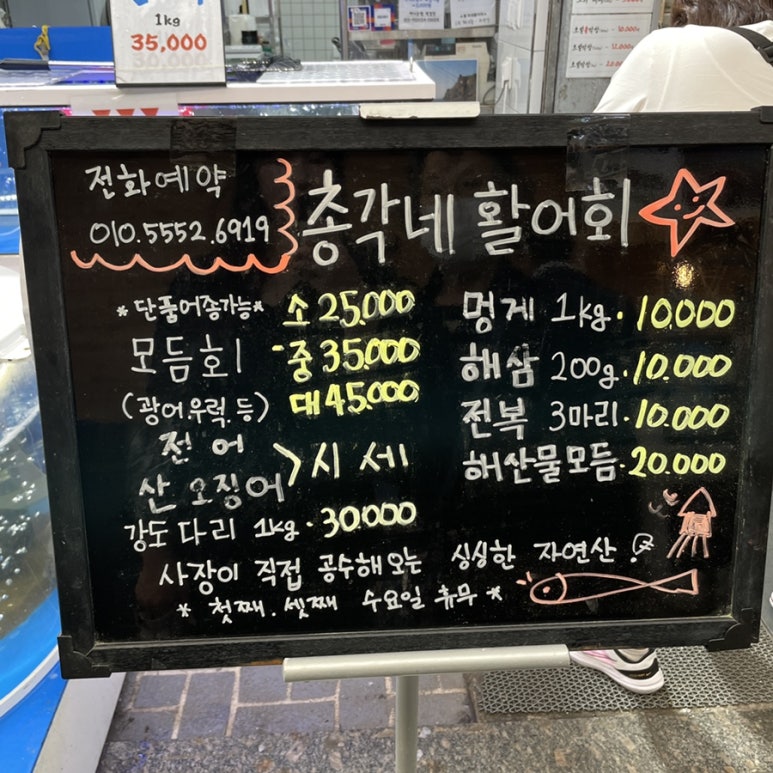 1kg
35,000
30,000
전화예약
010.5552.6919
총각네 활어회
*단품어종가능*
모듬회
(광어.우럭.등)
소 25.000
중 35.000
대 45.000
전어
산오징어
> 시세
강도다리 1kg · 30.000
멍게 1kg · 10.000
해삼 200g · 10.000
전복 3마리 · 10.000
해산물모듬 · 20.000
사장이 직접 공수해오는 싱싱한 자연산!
* 첫째. 셋째 수요일 휴무 *